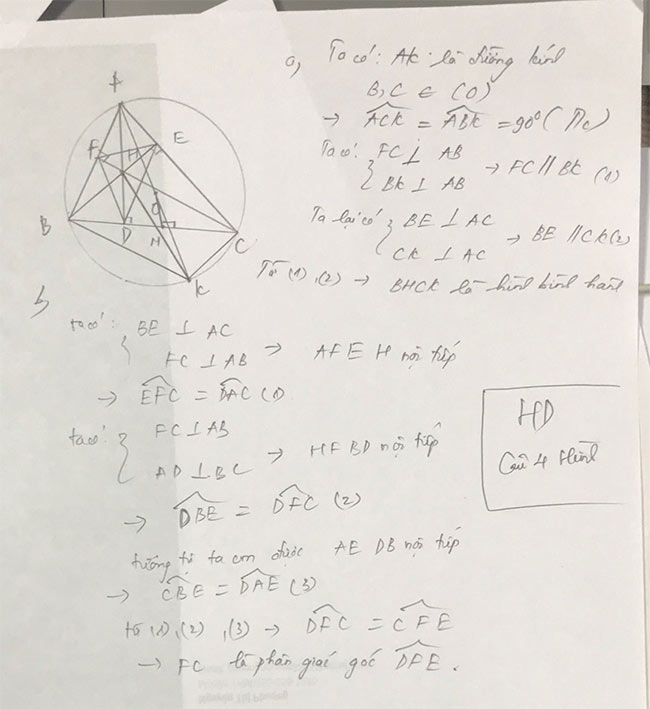 A
F
H
E
B
D
O
M
C
K
a, Ta có: AK là đường kính
B, C ∈ (O)
→ ACK = ABK = 90°
Ta có: { FC ⊥ AB
BK ⊥ AB → FC // BK (1)
Ta lại có { BE ⊥ AC
CK ⊥ AC → BE // CK (2)
Từ (1), (2) → BHCK là hình bình hành
b,
ta có: { BE ⊥ AC
FC ⊥ AB → AFEH nội tiếp
→ EFC = DAC (1)
ta có: { FC ⊥ AB
AD ⊥ BC → HFBD nội tiếp
→ DBE = DFC (2)
tương tự ta cm được AEDB nội tiếp
→ CBE = DAE (3)
từ (1), (2), (3) → DFC = CFE
→ FC là phân giác góc DFE.
HD
Câu 4 Hình